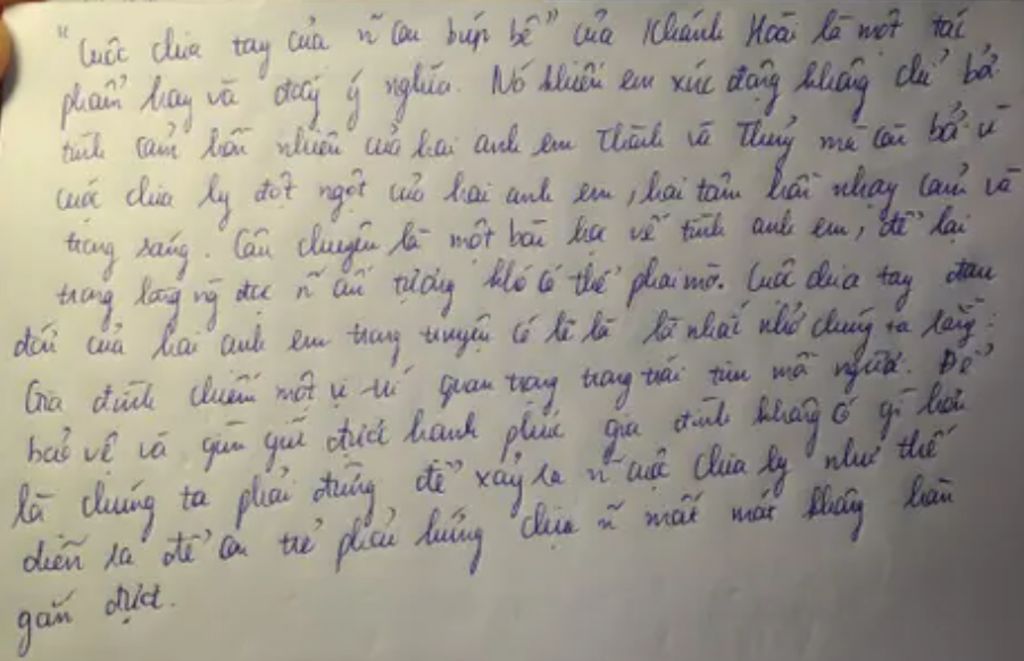 "Cuộc chia tay của ñ con búp bê" của Khánh Hoài là một tác
phẩm hay và đầy ý nghĩa. Nó khiến em xúc động không chỉ bởi
tình cảm hồn nhiên của hai anh em Thành và Thuỷ mà còn bởi vì
cuộc chia ly đột ngột của hai anh em, hai tâm hồn nhạy cảm và
trong sáng. Câu chuyện là một bài học về tình anh em, để lại
trong lòng ng đọc ñ ấn tượng khó có thể phai mờ. Cuộc chia tay đau
đớn của hai anh em trong truyện có lẽ là lời nhắc nhở chúng ta rằng:
Gia đình chiếm một vị trí quan trọng trong trái tim mỗi người. Để
bảo vệ và gìn giữ được hạnh phúc gia đình không có gì hơn
là chúng ta phải đừng để xảy ra ñ cuộc chia ly như thế
diễn ra để con trẻ phải hứng chịu ñ mất mát không hàn
gắn được.